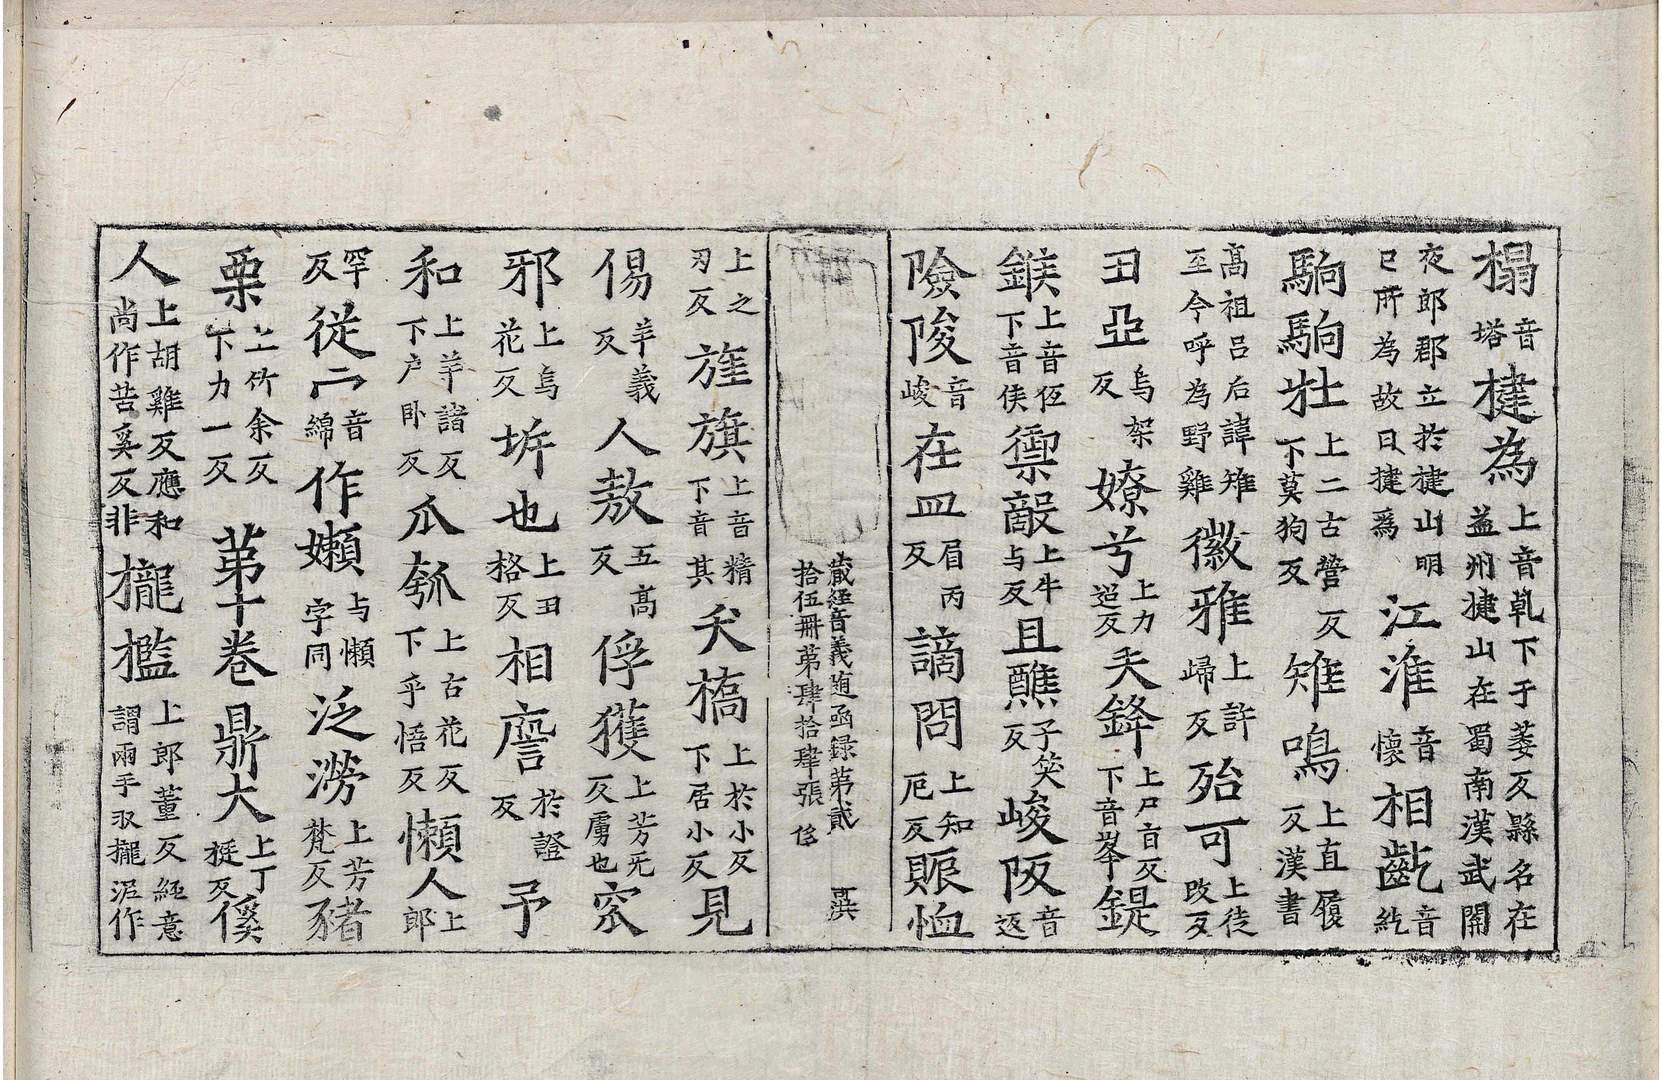 榻音塔揵為上音乹下于萎反縣名在益州揵山在蜀南漢武開
夜郎郡立於揵山明已所為故曰揵爲江淮音懷相齕音紇
駒駒牡上二古營反下莫狗反雉鳴上直履反漢書
髙祖呂后諱雉至今呼為野雞徽雅上許歸反殆可上徒改反
丑亞烏架反嫽兮上力迢反夭鋒上尸亩反下音峯鍉
鍭上音仾下音侯禦敵上牛与反且醮子笑反峻阪音返
險陖音峻在皿眉丙反謫罰上知厄反賑恤
藏經音義随函録第貳拾伍冊苐肆拾肆張 俻
上之刃反旌旗上音精下音其夭矯上於小反下居小反見
傷羊義反人敖五髙反俘獲上芳无反虜也窊
邪上烏花反坼也上丑格反相譍於證反予
和上羊諸反下户卧反瓜瓠上古花反下乎悟反懶人上郎
罕反從宀音綿作嬾与懶字同泛澇上芳梵反豬
栗上竹余反下力一反苐十卷鼎大上丁挺反傒
人上胡雞反應和尚作苦奚反非攏檻上郎董反經意謂兩手取攏泥作